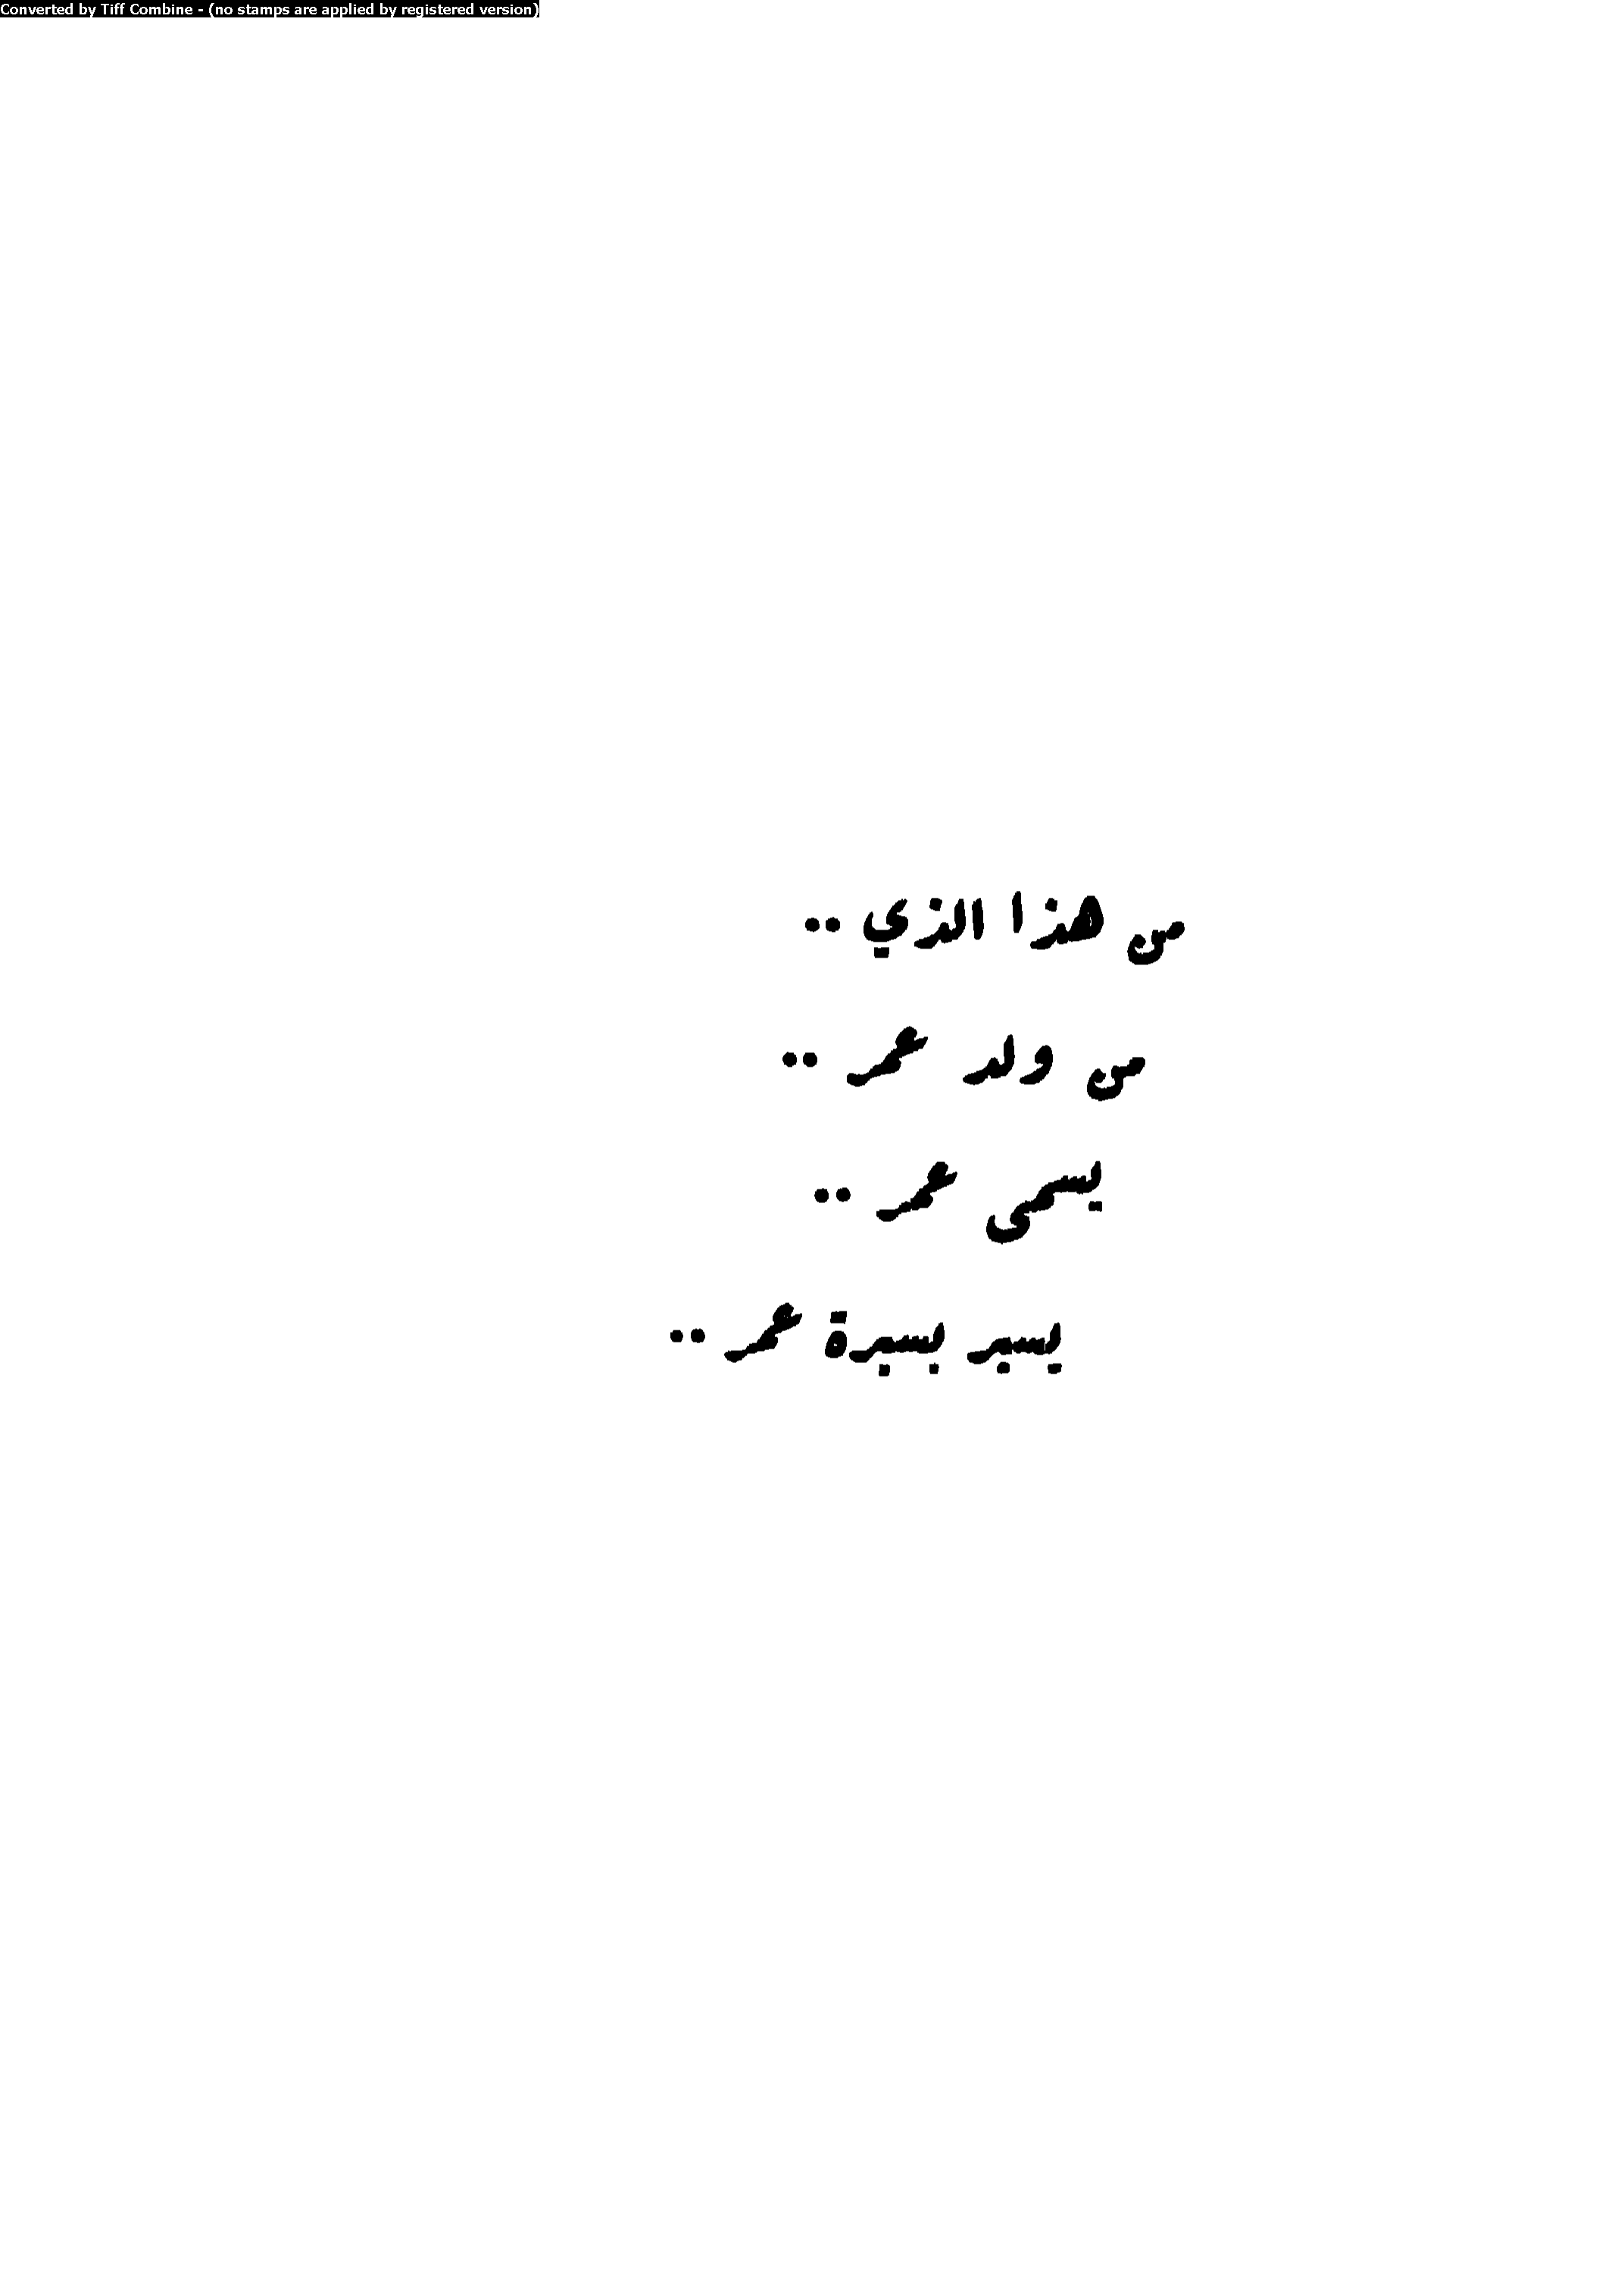 Converted by Tiff Combine - (no stamps are applied by registered version)
من هذا الذي ..
من ولد عمر ..
يسمى عمر ..
يسير بسيرة عمر ..